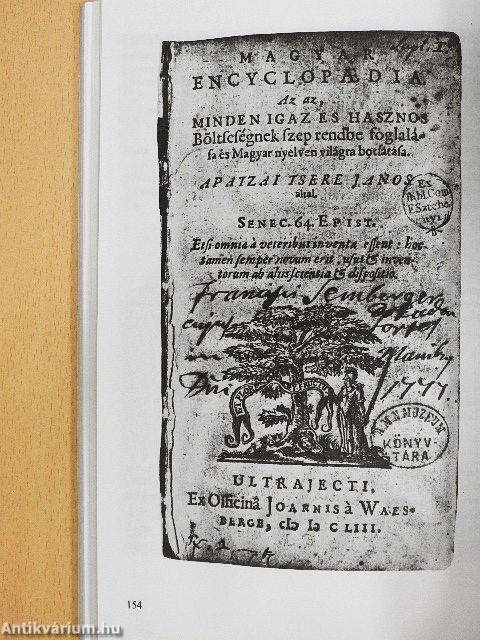 MAGYAR
ENCYCLOPÆDIA
Az az,
MINDEN IGAZ ES HASZNOS
Bőltseségnek szep rendbe foglalá-
sa és Magyar nyelven világra botsátása.
APATZAI TSERE JANOS
által.
SENEC. 64. EPIST.
Etsi omnia à veteribus inventa essent: hoc
tamen semper novum erit, usus & inven-
torum ab aliis scientia & dispositio.
Ex
Bibl. Com.
F. Szeche-
nyi
Francisci
M. N. MUZEUM
KÖNYV-
TÁRA
ULTRAJECTI,
Ex Officinâ JOANNIS à WAES-
BERGE, cIↄ Iↄ CLIII.
154
Antikvárium.hu